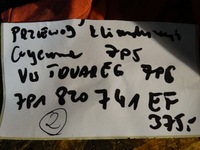 Przewód klimatyzacji
Cayenne 7P5
VW TOUAREG 7P6
7P1 820 741 EF
375,-
2